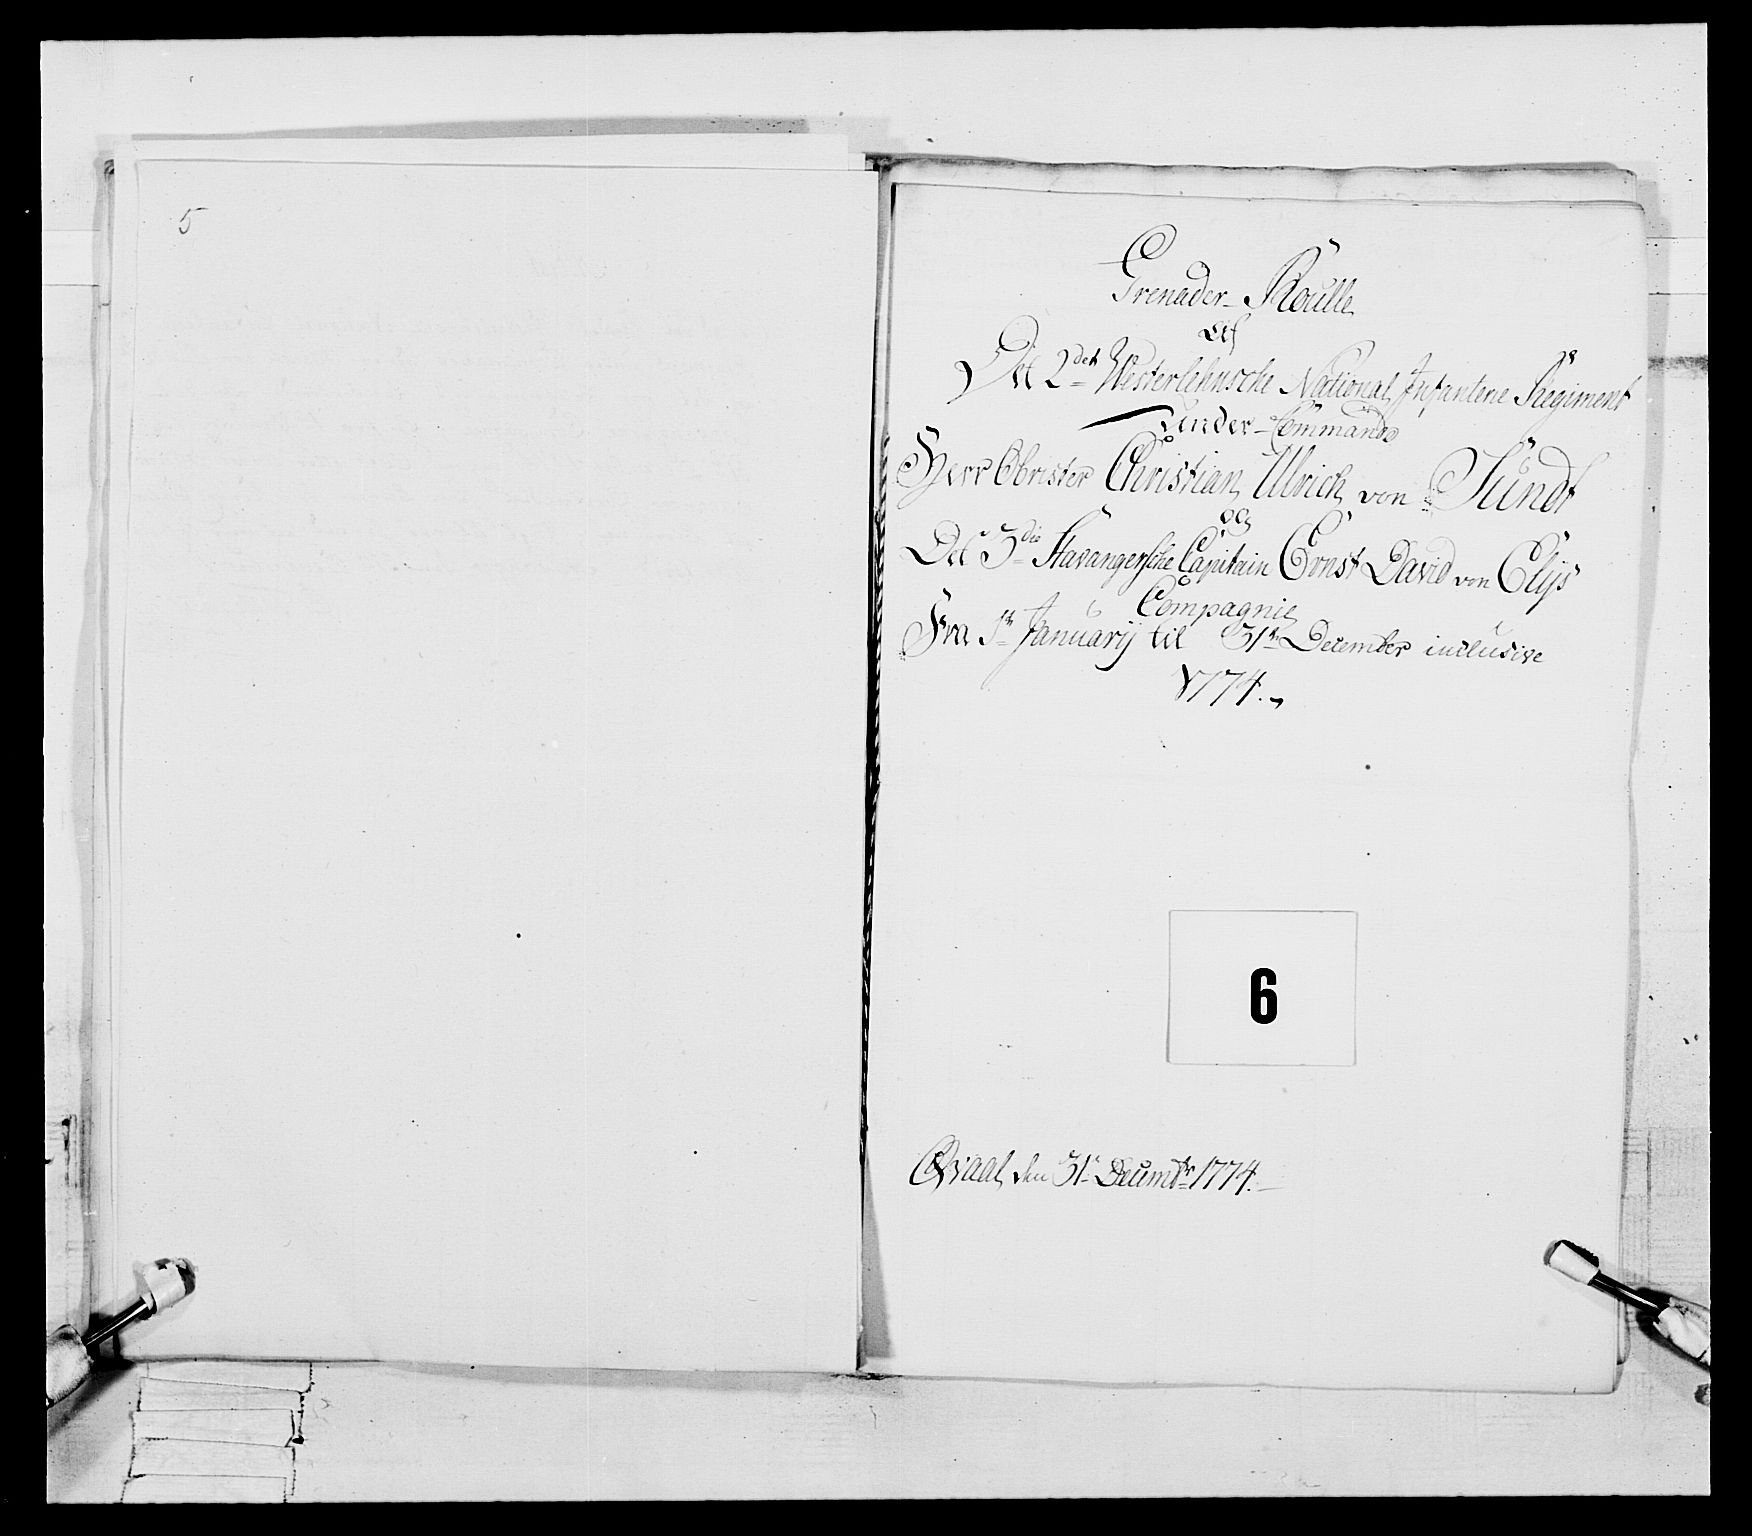 5
Grenader-Roulle
Af
Det 2det Westerlehnsche National Infanterie Regiment
under Commando
Herr Obrister Christian Ulrich von Sundt
og
Det 3die Stavangersche Capitain Ernst David von Elÿs
Compagnie
Fra 1te Januarij til 31te December inclusive
1774.
6
Qvaal den 31te Decembr 1774.